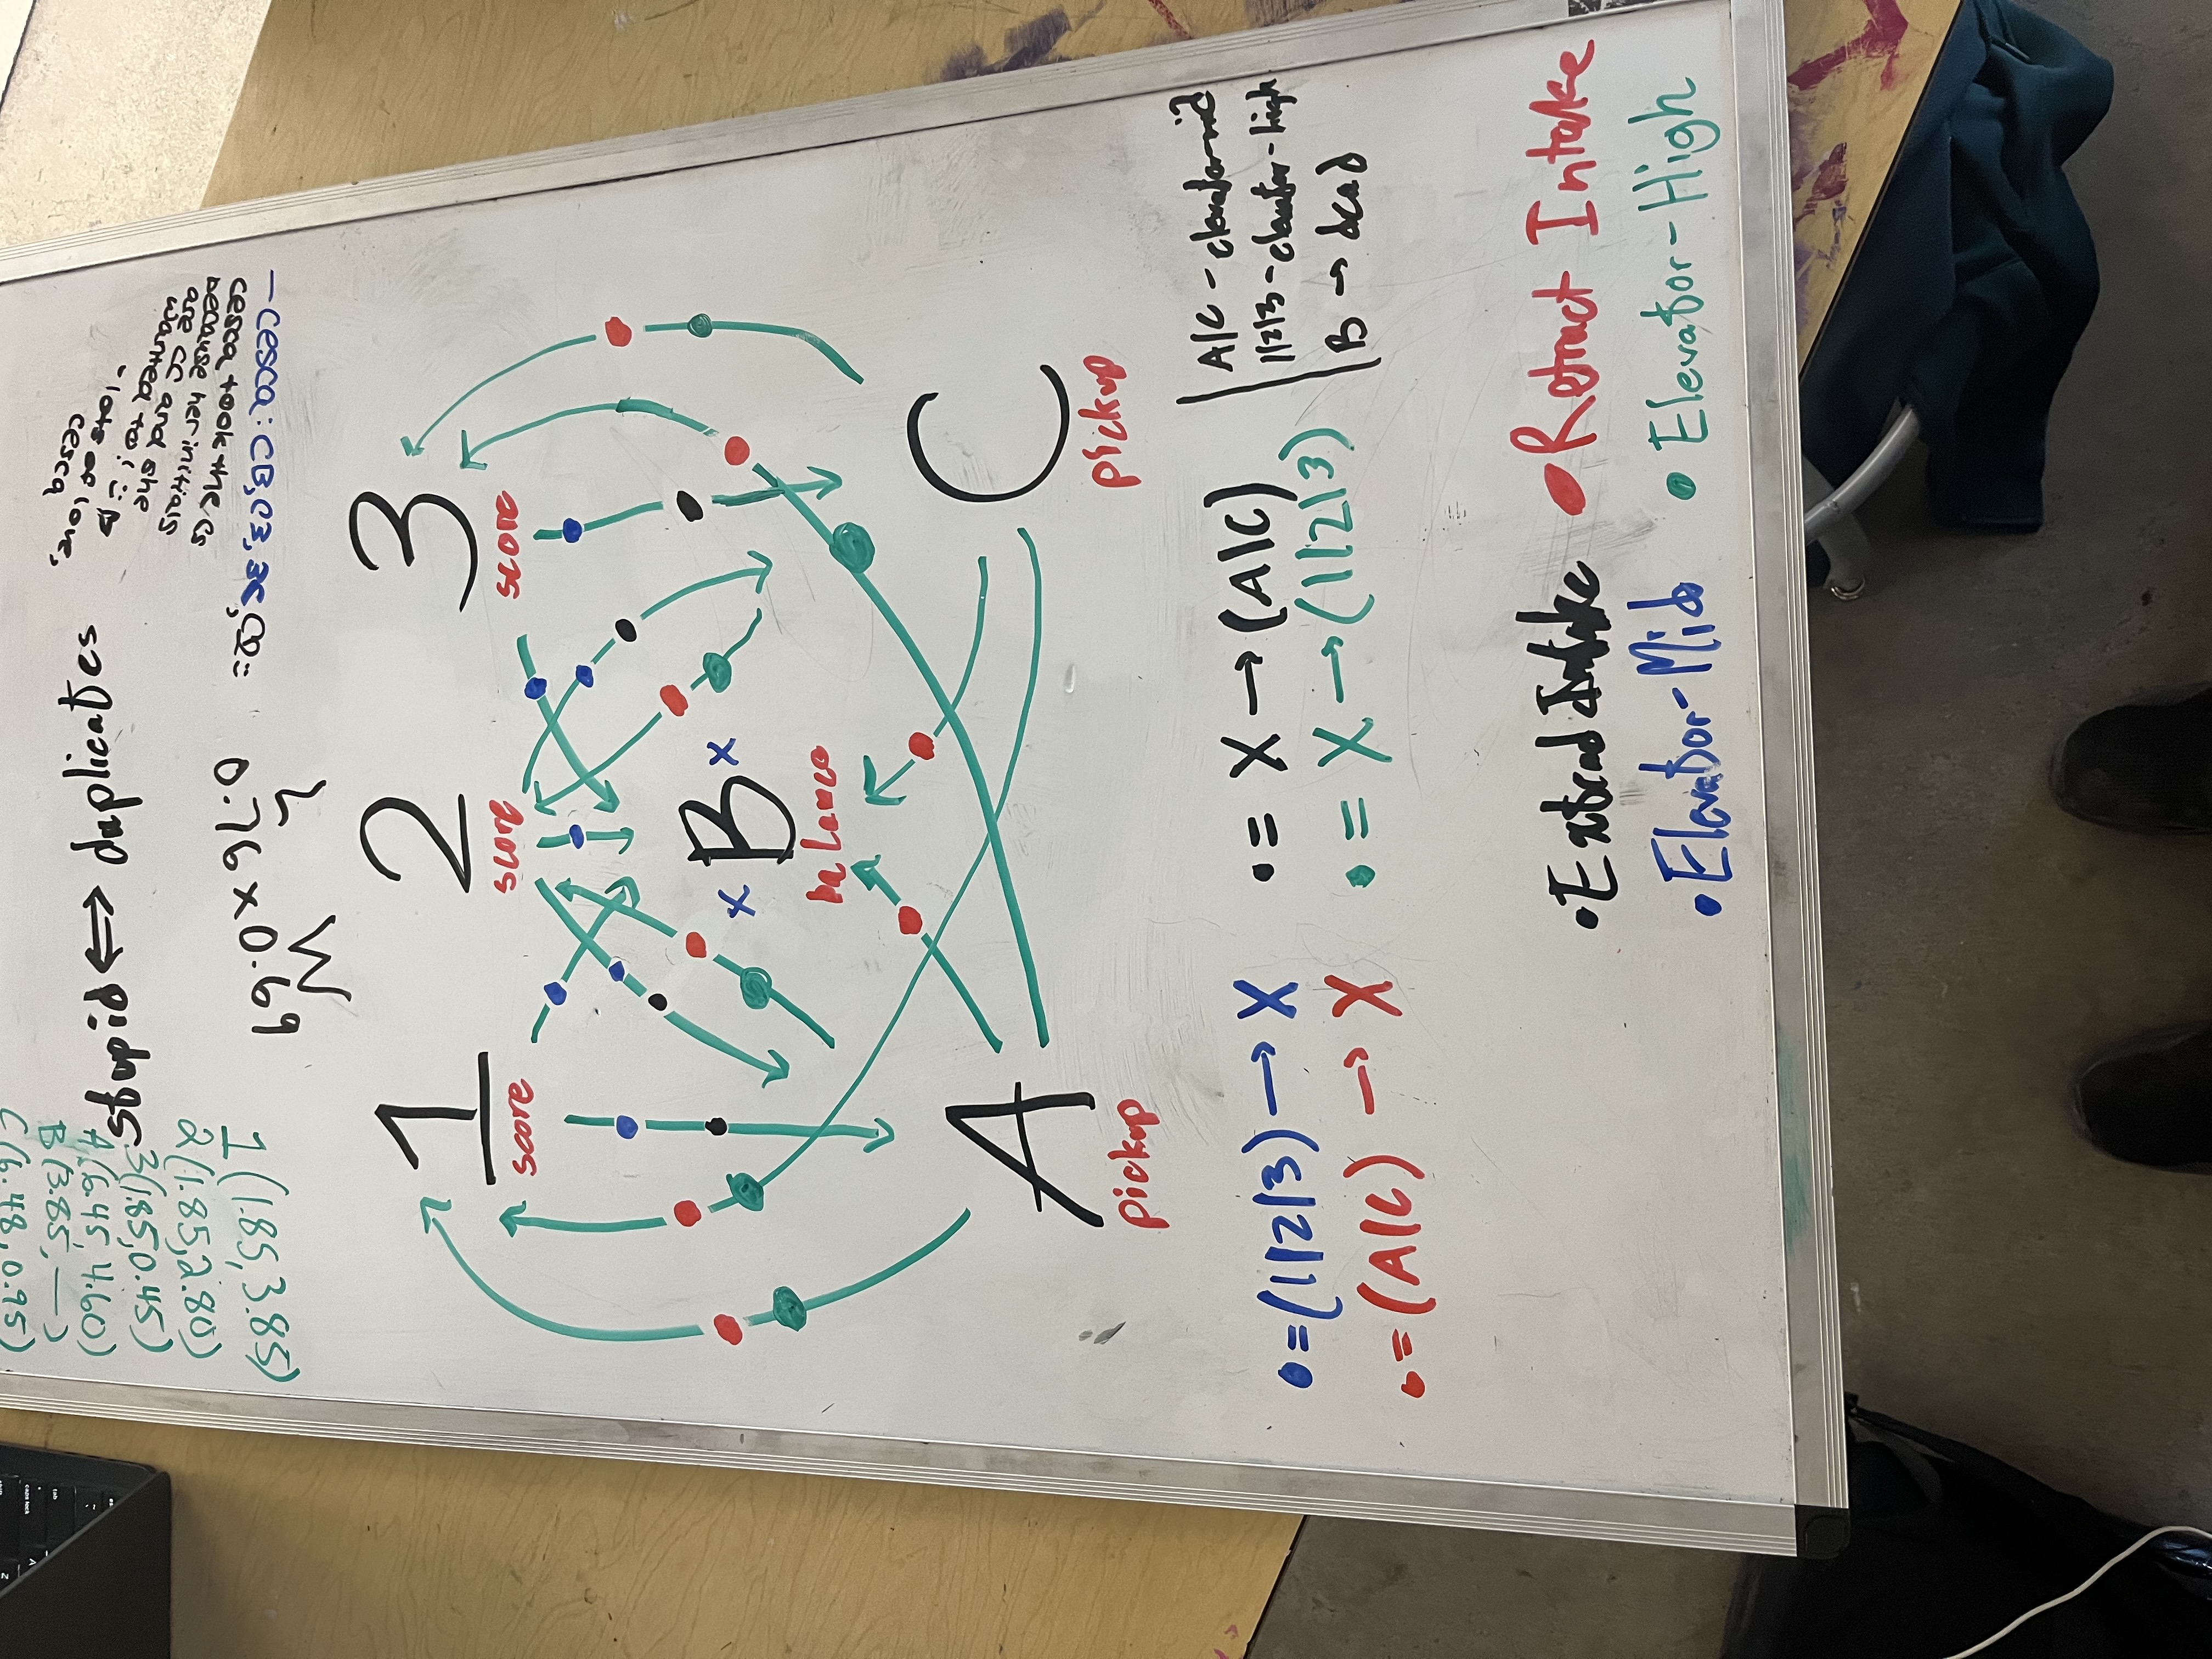 C(6.48, 0.95)
B(3.85, —)
A(6.45, 4.60)
3(1.85, 0.45)
2(1.85, 2.80)
1(1.85, 3.85)
stupid ⟺ duplicates
— cesca: CB, C3, 3C,
cesca took the Cs
because her initials
are CC and she
wanted to ; :)
- lots of love,
cesca
L W
0.76 x 0.69
1 2 3
score score score
x B x
balance
A C
pickup pickup
• = (1|2|3) → X
• = (A|C) → X
• = X → (A|C)
• = X → (1|2|3)
A/C - elevator-mid
1|2|3 - elevator-high
B → dead
• Extend Intake
• Retract Intake
• Elevator-Mid
• Elevator-High